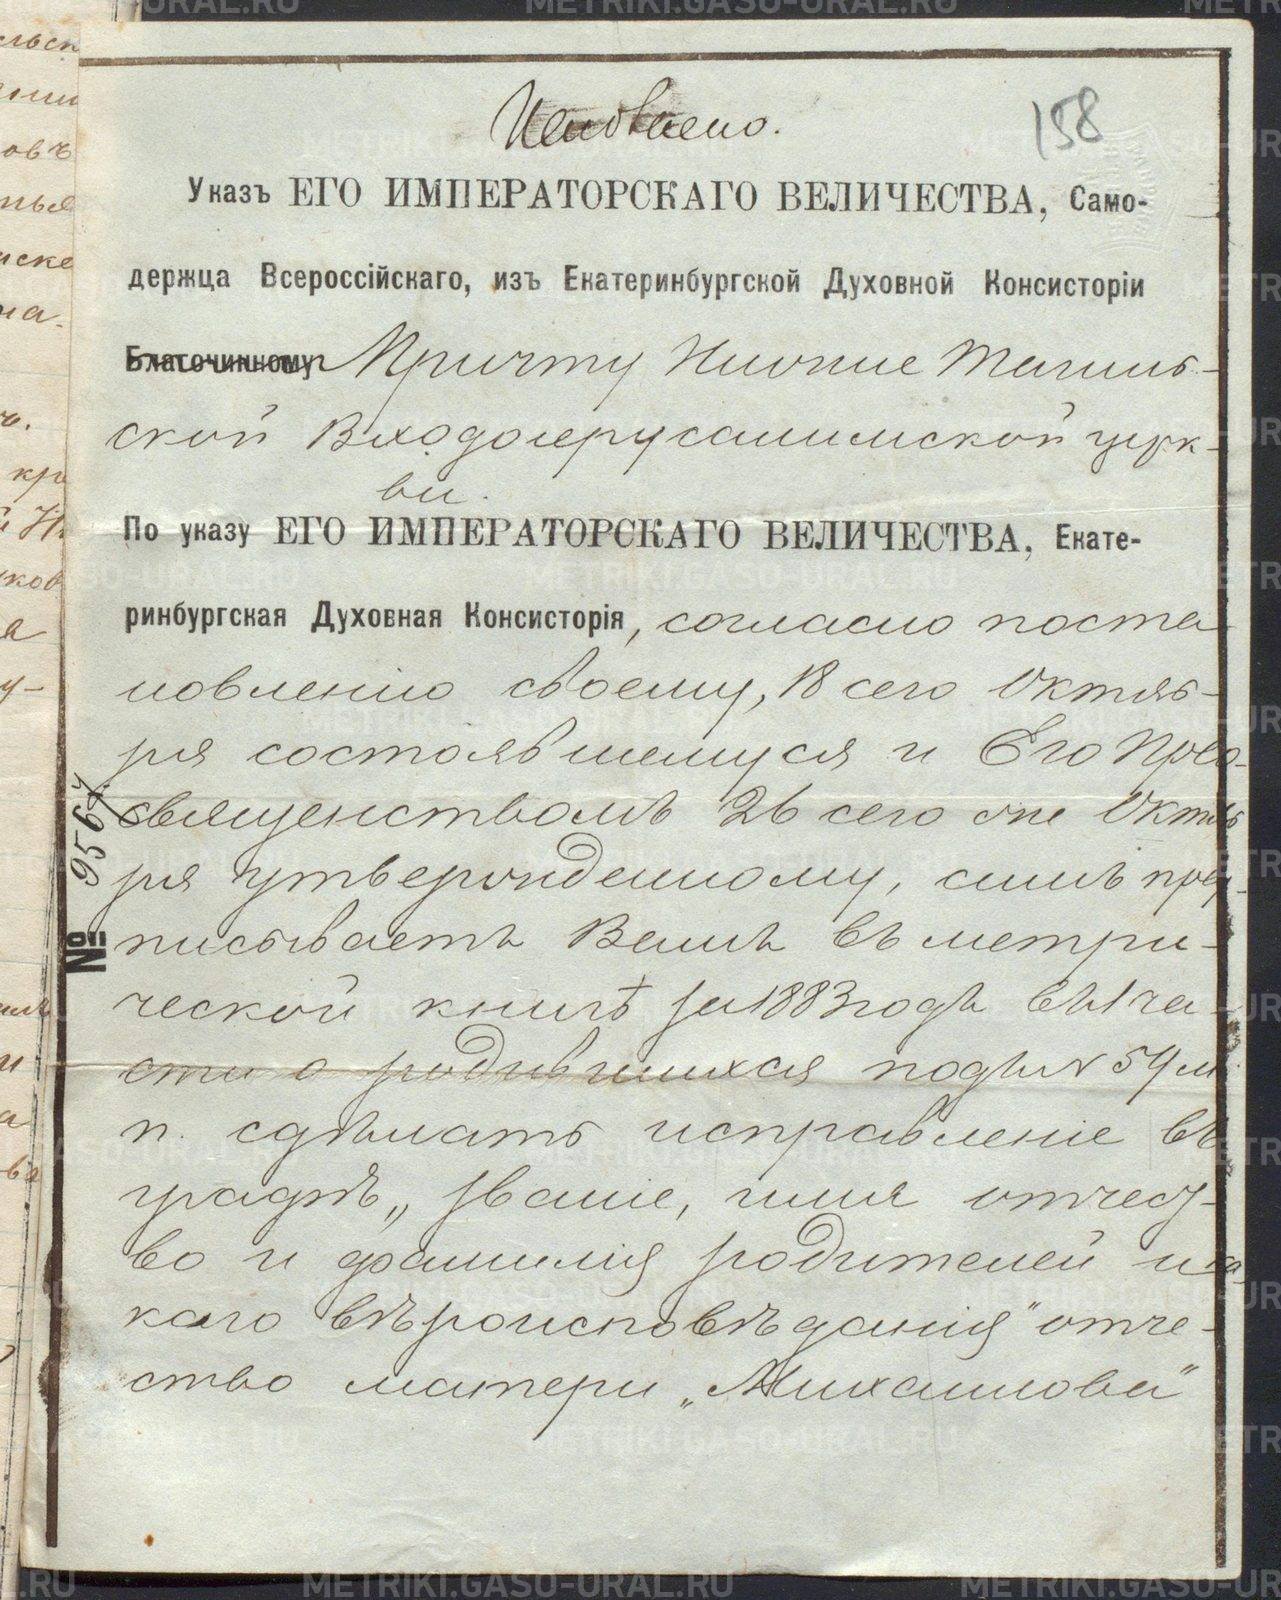 158
Указъ ЕГО ИМПЕРАТОРСКАГО ВЕЛИЧЕСТВА, Само-
держца Всероссійскаго, изъ Екатеринбургской Духовной Консисторіи
Благочинному Причту Нижне Тагиль-
ской Входоіерусалимской церк-
ви.
По указу ЕГО ИМПЕРАТОРСКАГО ВЕЛИЧЕСТВА, Екате-
ринбургская Духовная Консисторія, согласно поста
новленію своему, 18 сего Октяб-
ря состоявшемуся и Его Прео-
священствомъ 26 сего же Октяб
ря утвержденному, симъ пред-
писываетъ Вамъ въ метри-
ческой книгѣ за 1883 годъ въ 1 ча-
сти о родившихся подъ № 54 м.
п. сдѣлать исправленіе въ
графѣ „званіе, имя отчест-
во и фамилія родителей и ка
каго вѣроисповѣданія“ отче-
ство матери „Михаилова“
№ 9564
METRIKI.GASO-URAL.RU